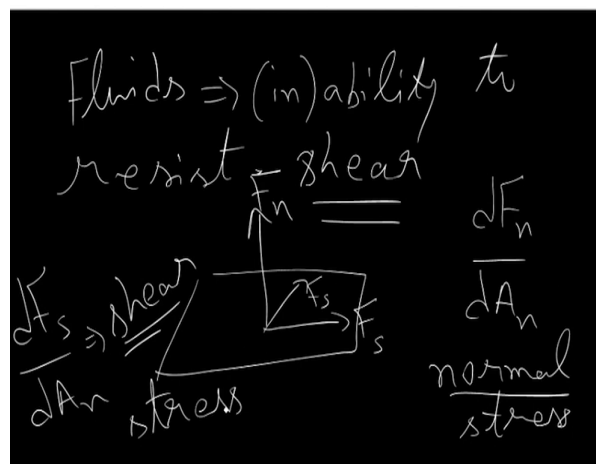 Fluids => (in)ability to
resist shear
Fn
dFn
dAn
normal
stress
Fs
Fs
dFs
dAn
=> shear
stress